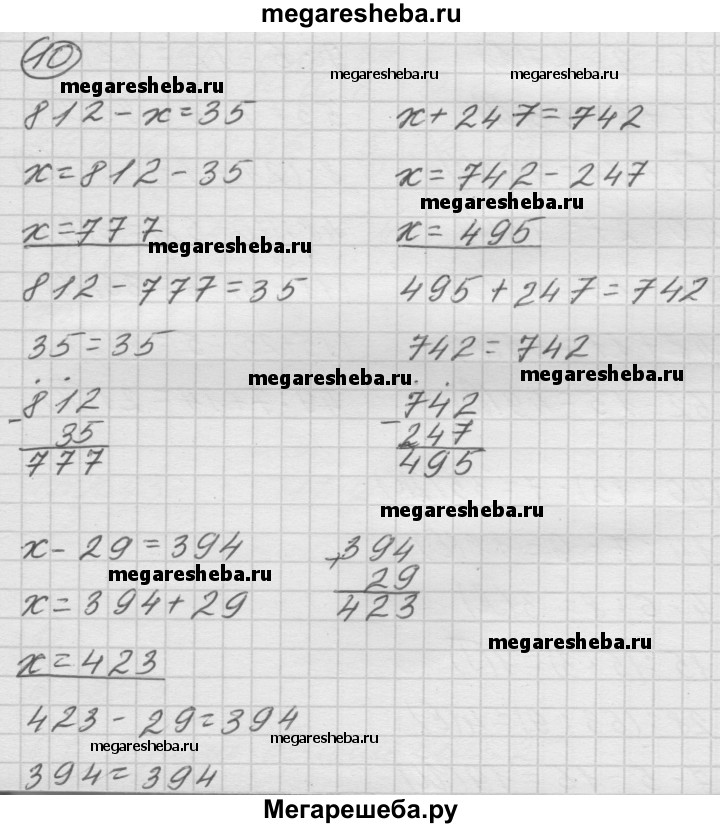 megaresheba.ru
10
megaresheba.ru
megaresheba.ru
megaresheba.ru
812 - x = 35
x = 812 - 35
megaresheba.ru
x = 777
812 - 777 = 35
35 = 35
megaresheba.ru
812
- 35
777
x + 247 = 742
x = 742 - 247
megaresheba.ru
x = 495
495 + 247 = 742
742 = 742
megaresheba.ru
742
- 247
495
megaresheba.ru
x - 29 = 394
megaresheba.ru
x = 394 + 29
x = 423
423 - 29 = 394
megaresheba.ru
394 = 394
394
+ 29
423
megaresheba.ru
megaresheba.ru
Мегарешеба.ру